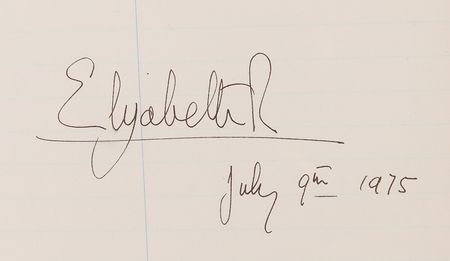 Elizabeth R
July 9th 1975